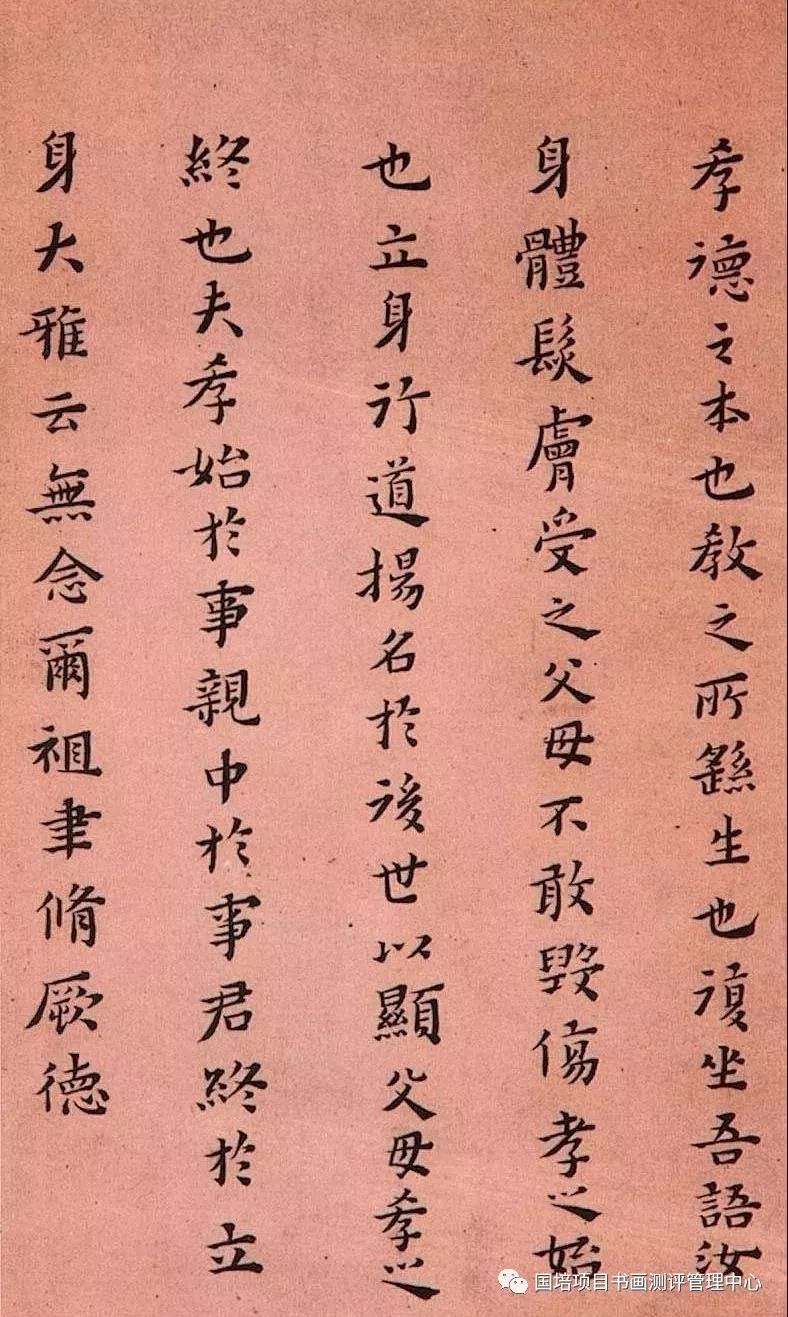 孝德之本也教之所繇生也復坐吾語汝
身體髮膚受之父母不敢毀傷孝之始
也立身行道揚名於後世以顯父母孝之
終也夫孝始於事親中於事君終於立
身大雅云無念爾祖聿脩厥德
国培项目书画测评管理中心